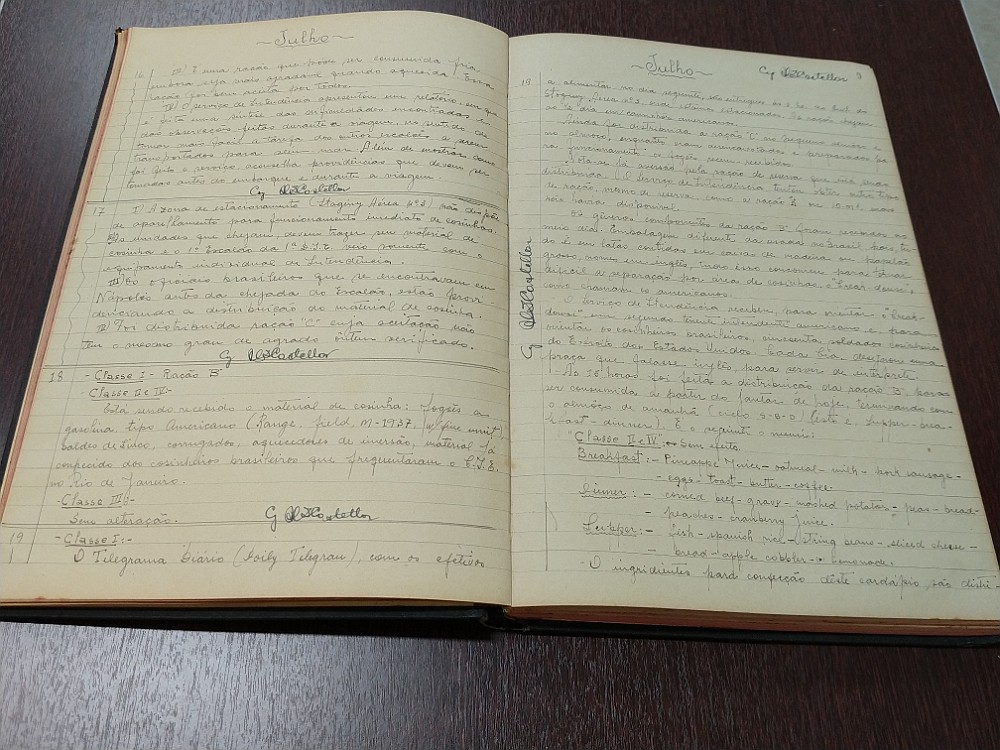 ~ Julho ~
16 III) É uma ração que pode ser consumida fria,
embora seja mais agradavel quando aquecida. Essa
ração foi bem aceita por todos.
IV) O serviço de Intendência apresentou um relatório, em que
é feita uma síntese das dificuldades encontradas e
das observações feitas durante a viagem, no sentido de
tornar mais facil a tarefa dos outros escalões a serem
transportados para além mar. Além de mostrar como
foi feito o serviço, aconselha providências que devem ser
tomadas antes do embarque e durante a viagem.
17 I) A zona de estacionamento (Staging Área nº 3) não dispõe
de aparelhamento para funcionamento imediato de cosinhas.
II) As unidades que chegam, devem trazer seu material de
cosinha e o 1º Escalão da 1ª D.I.E. veio somente com o
equipamento individual de Intendência.
III) Os oficiais brasileiros que se encontravam em
Nápoles antes da chegada do Escalão, estão provi-
denciando a distribuição do material de cosinha.
IV) Foi distribuida ração "C" cuja aceitação não
tem o mesmo grau de agrado ontem verificado.
18 - Classe I - Ração "B"
- Classe II e IV -
Está sendo recebido o material de cosinha: fogões a
gasolina tipo Americano (Range, field, M-1937, w/fire unit),
baldes de zinco, corrugados, aquecedores de imersão, material já
conhecido dos cosinheiros brasileiros que frequentaram o
no Rio de Janeiro.
- Classe III:-
Sem alteração.
19 - Classe I:-
O Telegrama Diário (Daily Telegram), com os efetivos
~ Julho ~
19 a alimentar no dia seguinte, são entregues às
Staging Área nº 3, onde estamos estacionados. As rações chegam
em caminhões americanos.
Ainda foi distribuida a ração "C" no pequeno almoço e
no almoço, enquanto eram desencaixotados e preparados pa-
ra funcionamento os fogões recem-recebidos.
Nota-se
distribuida. O Serviço de Intendência tentou obter outro tipo
de ração, mesmo de reserva, como a ração K ou 10 in 1, mas
não havia disponivel.
Os gêneros componentes da ração "B" foram recebidos ao
meio dia. Embalagem diferente da usada no Brasil pois, tu-
do é em latas contidas em caixas de madeira ou papelão
grosso, nomes em inglês, tudo isso concorreu para tornar
dificil a separação por área de cosinhas o "break-down",
como chamam os americanos.
O Serviço de Intendência recebeu, para orientar o "break-
down" um segundo tenente intendente americano e, para
orientar os cosinheiros brasileiros, cincoenta soldados cosinheiros
do Exército dos Estados Unidos. Cada Cia. destacou uma
praça que falasse inglês, para servir de intérprete.
Às 18 horas foi feita a distribuição da ração "B", para
ser consumida a partir do jantar de hoje, terminando com
o almoço de amanhã (ciclo S-B-D, isto é, supper-brea-
kfast-dinner). É o seguinte o menu:
"Classe II e IV" - Sem efeito.
Breakfast:- Pineapple Juice - oatmeal - milk - pork sausage -
- eggs - toast - butter - coffee.
Dinner: - corned beef - gravy - mashed potatoes - peas - bread -
- peaches - cranberry juice.
Supper: - fish - spanish rice - string beans - sliced cheese -
- bread - apple cobbler - lemonade.
- O ingridientes para confecção dêste cardápio, são distri-